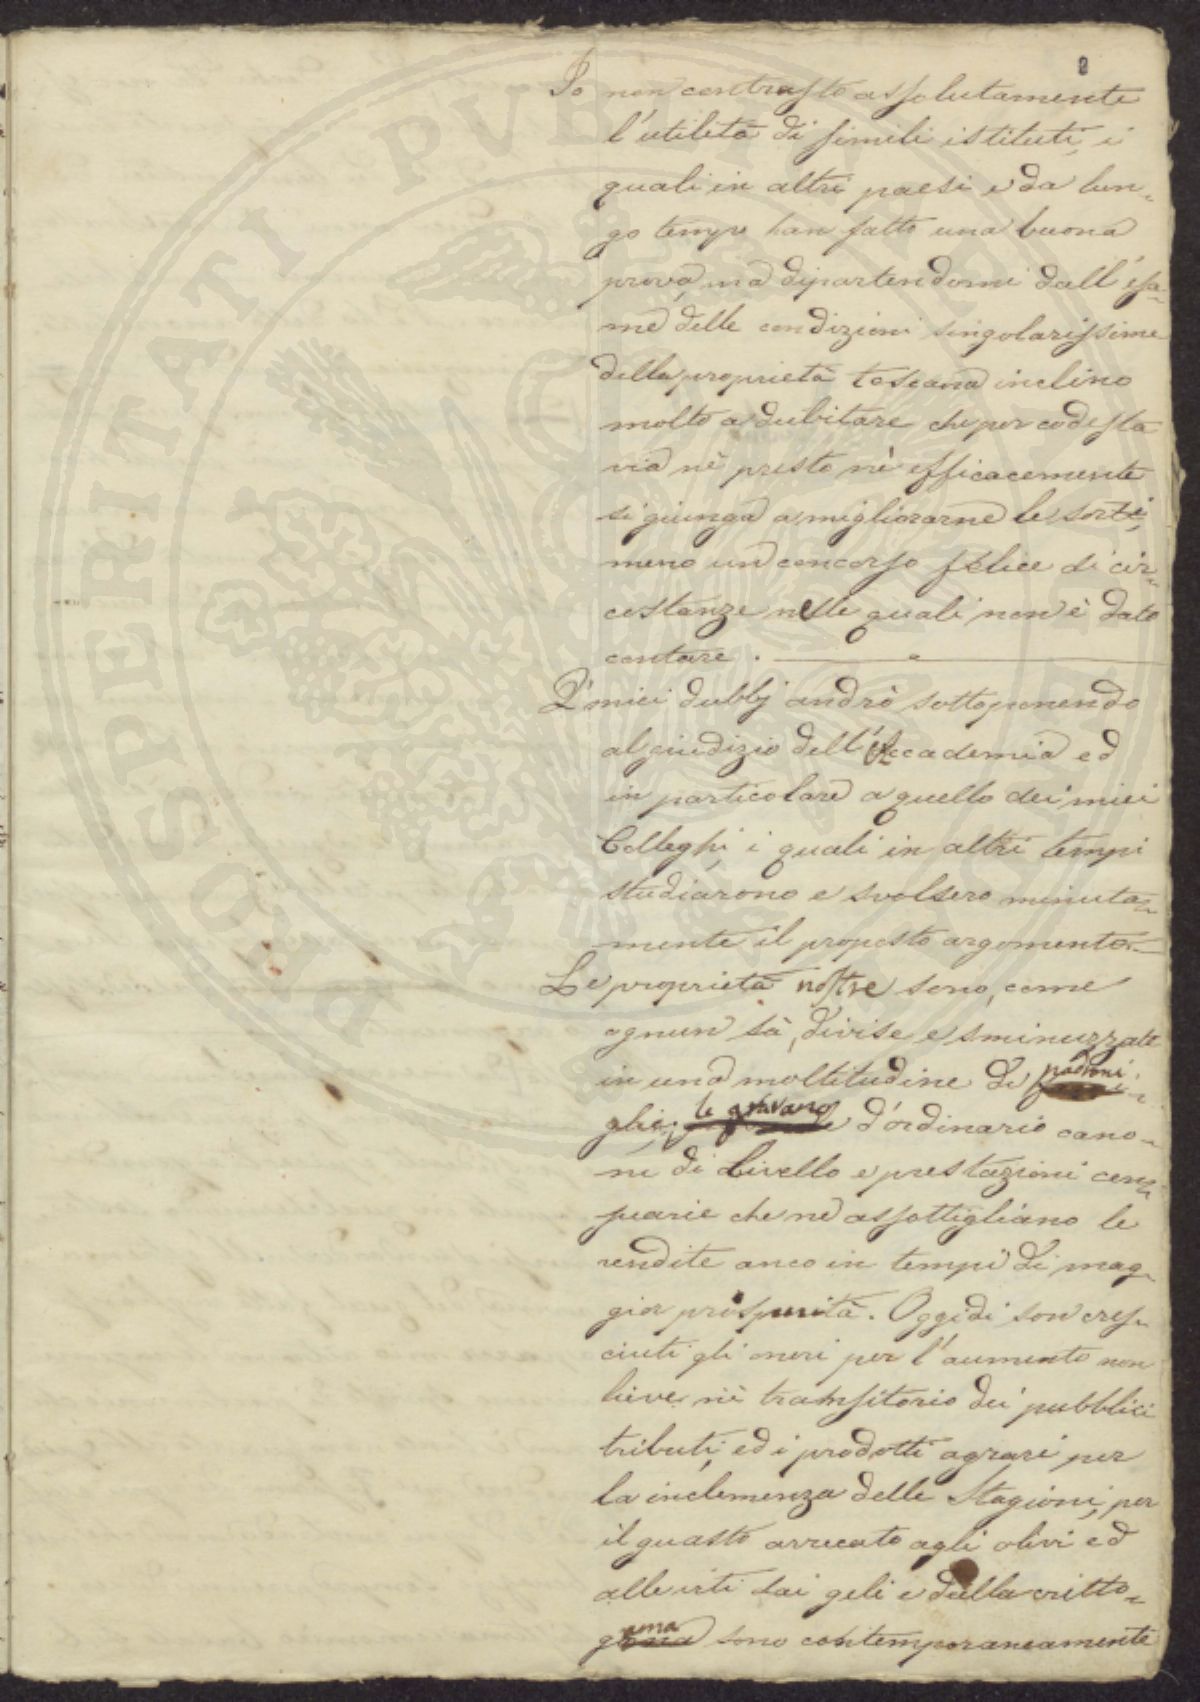 Io non contrasto assolutamente
l'utilità di simili istituti, i
quali in altri paesi e da lun-
go tempo han fatto una buona
prova, ma dipartendomi dall'esa-
me delle condizioni singolarissime
della proprietà toscana inclino
molto a dubitare che per codesta
via nè presto nè efficacemente
si giunga a migliorarne le sorti,
meno un concorso felice di cir-
costanze nelle quali non è dato
contare.
I miei dubbj andrò sottoponendo
al giudizio dell'Accademia ed
in particolare a quello dei miei
Colleghi, i quali in altri tempi
studiarono e svolsero minuta-
mente il proposto argomento.
Le proprietà nostre sono, come
ognun sà, divise e sminuzzate
in una moltitudine di padroni
glie, le gravano d'ordinario cano-
ni di Livello e prestazioni cen-
suarie che ne assottigliano le
rendite anco in tempi di mag-
gior prosperità. Oggidi son cres-
ciuti gli oneri per l'aumento non
lieve, nè transitorio dei pubblici
tributi, ed i prodotti agrari per
la inclemenza delle Stagioni, per
il guasto arrecato agli olivi ed
alle viti dai geli e dalla critto-
gama sono contemporaneamente
PROSPERITATI PVBLICAE